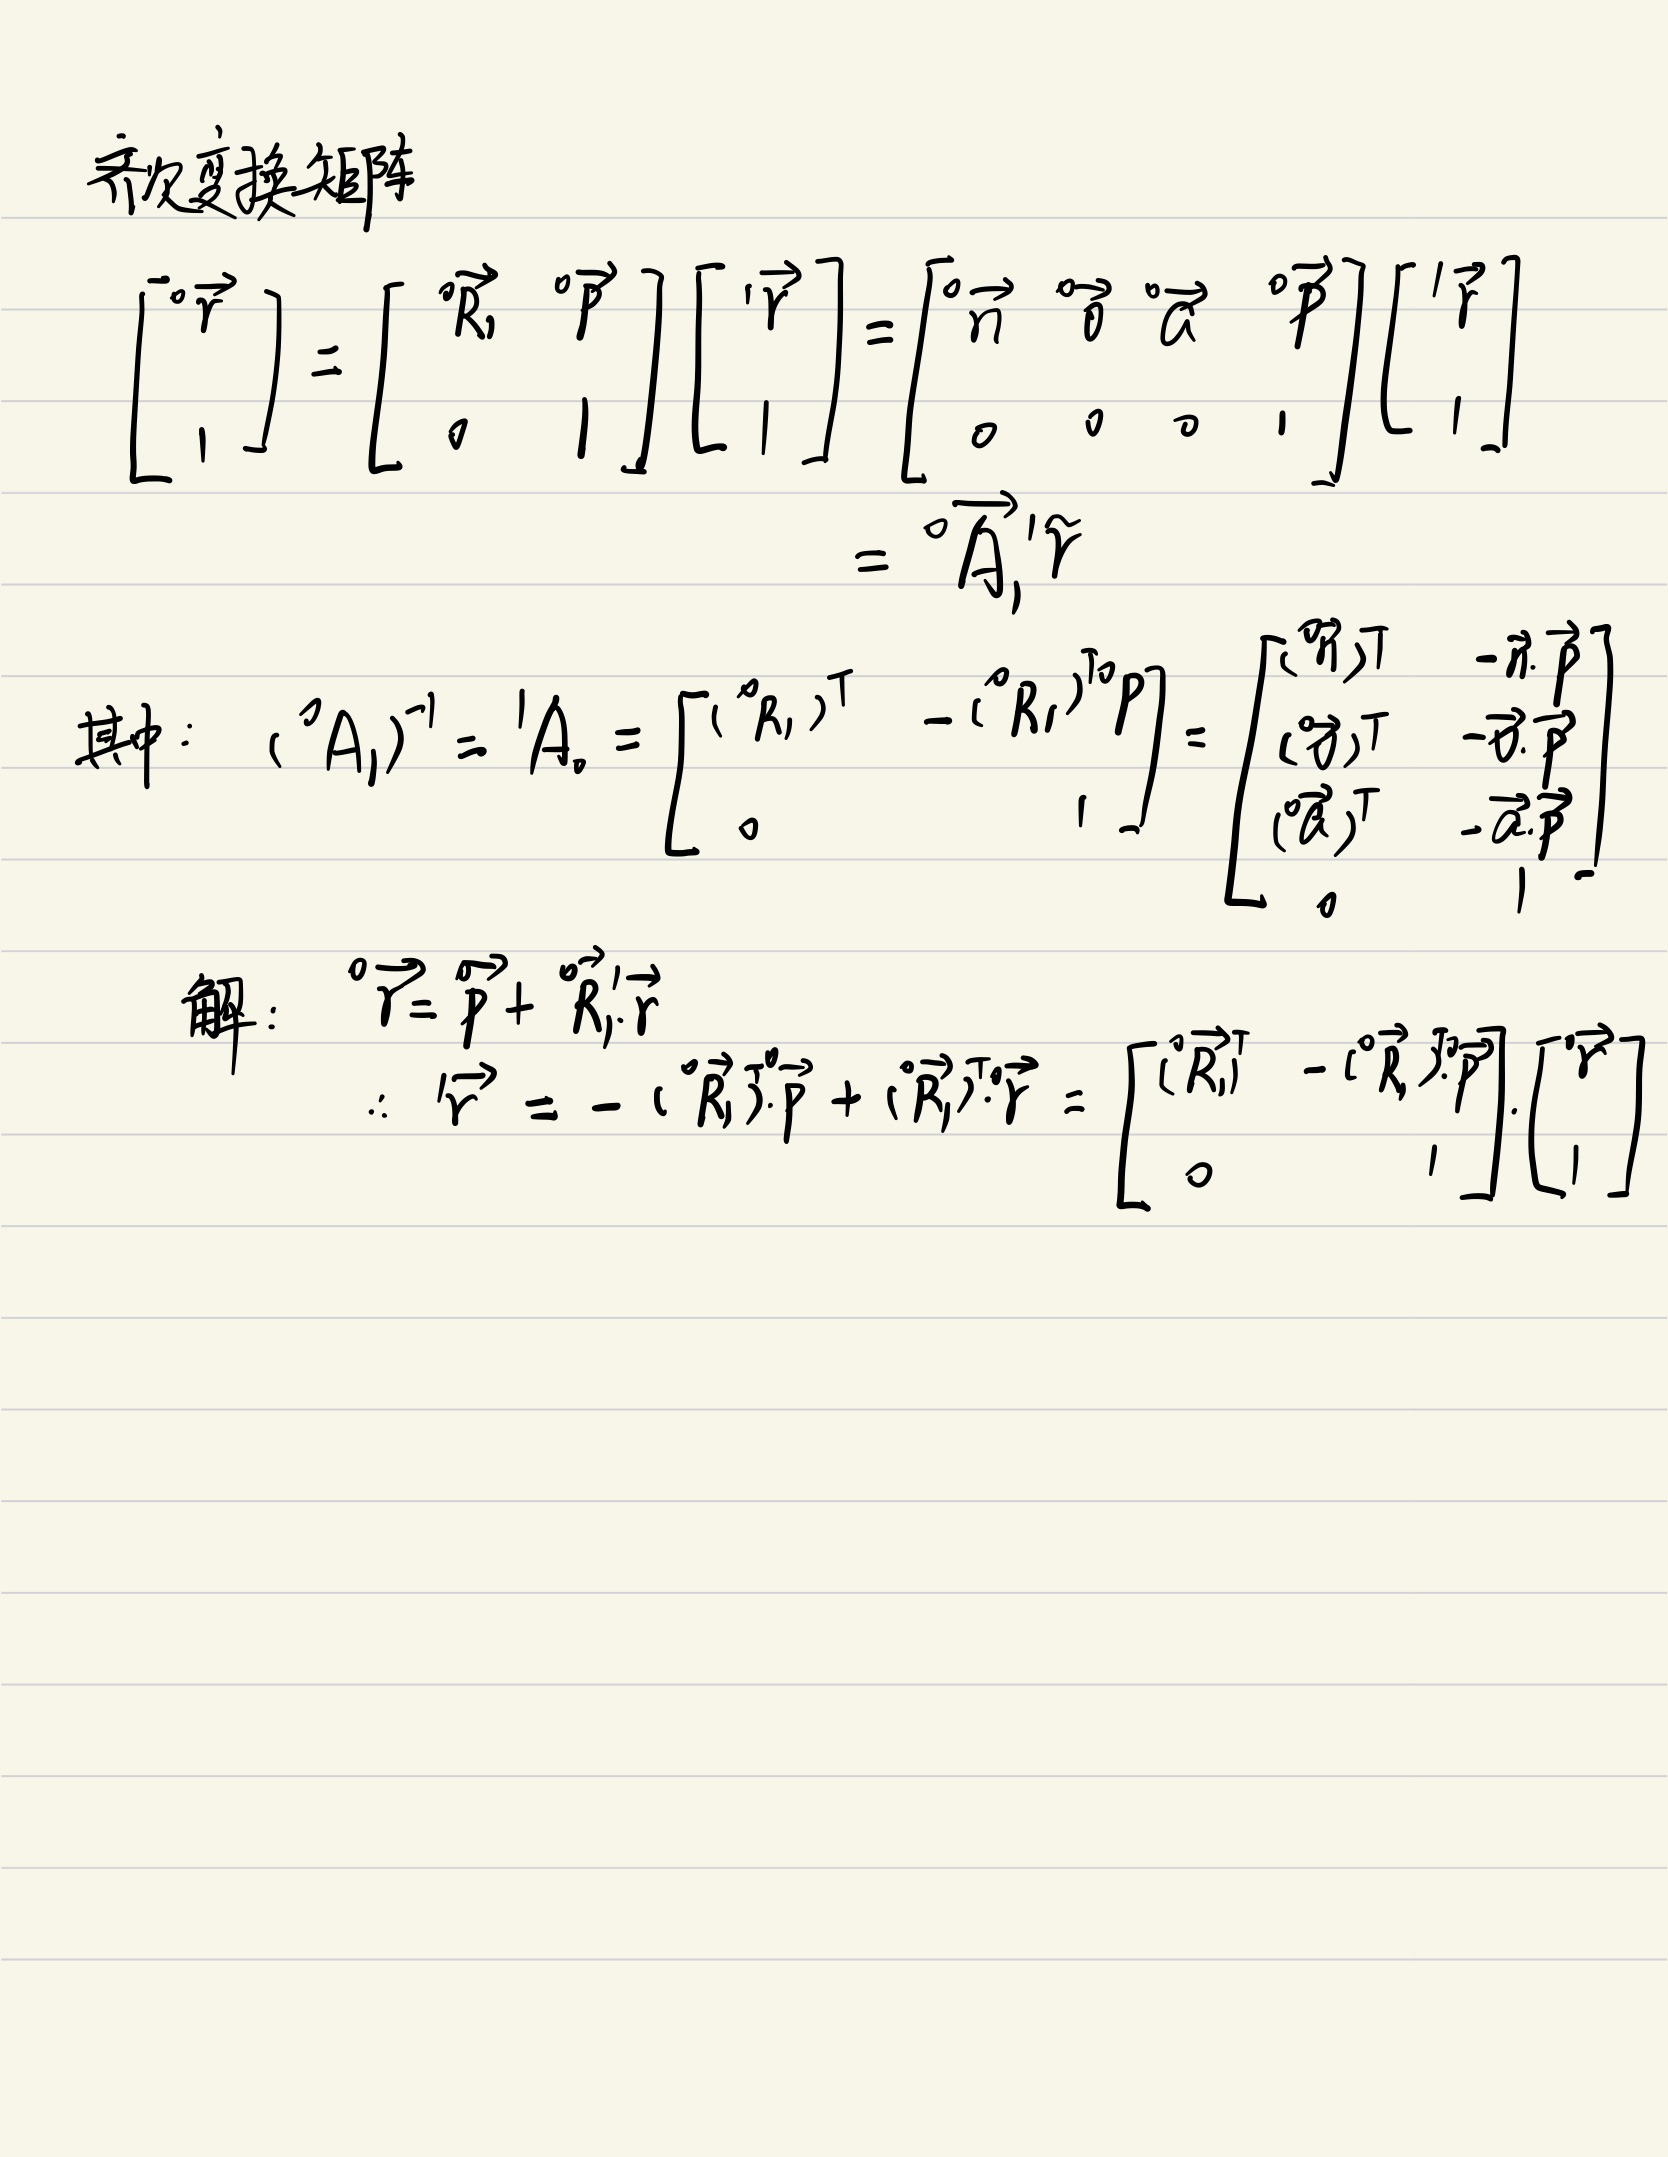 齐次变换矩阵
$\begin{bmatrix} {}^0\vec{r} \\ 1 \end{bmatrix} = \begin{bmatrix} {}^0\vec{R}_1 & {}^0\vec{p} \\ 0 & 1 \end{bmatrix} \begin{bmatrix} {}^1\vec{r} \\ 1 \end{bmatrix} = \begin{bmatrix} {}^0\vec{n} & {}^0\vec{o} & {}^0\vec{a} & {}^0\vec{p} \\ 0 & 0 & 0 & 1 \end{bmatrix} \begin{bmatrix} {}^1\vec{r} \\ 1 \end{bmatrix}$
$= {}^0\vec{A}_1 {}^1\tilde{r}$
其中: $({}^0A_1)^{-1} = {}^1A_0 = \begin{bmatrix} ({}^0R_1)^T & -({}^0R_1)^T {}^0p \\ 0 & 1 \end{bmatrix} = \begin{bmatrix} ({}^0\vec{n})^T & -\vec{n}\cdot\vec{p} \\ ({}^0\vec{o})^T & -\vec{o}\cdot\vec{p} \\ ({}^0\vec{a})^T & -\vec{a}\cdot\vec{p} \\ 0 & 1 \end{bmatrix}$
解: ${}^0\vec{r} = {}^0\vec{p} + {}^0\vec{R}_1 \cdot {}^1\vec{r}$
$\therefore {}^1\vec{r} = -({}^0\vec{R}_1)^T \cdot {}^0\vec{p} + ({}^0\vec{R}_1)^T \cdot {}^0\vec{r} = \begin{bmatrix} ({}^0\vec{R}_1)^T & -({}^0\vec{R}_1)^T \cdot {}^0\vec{p} \\ 0 & 1 \end{bmatrix} \cdot \begin{bmatrix} {}^0\vec{r} \\ 1 \end{bmatrix}$